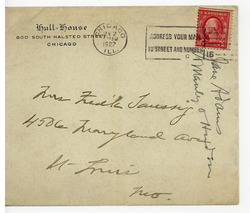 Hull-House
800 SOUTH HALSTED STREET
CHICAGO
CHICAGO
1927
ILL.
ADDRESS YOUR MAIL
TO STREET AND NUMBER
Mrs Fredk Taussig
4506 Maryland Ave
St Louis
Mo.
Jane Addams